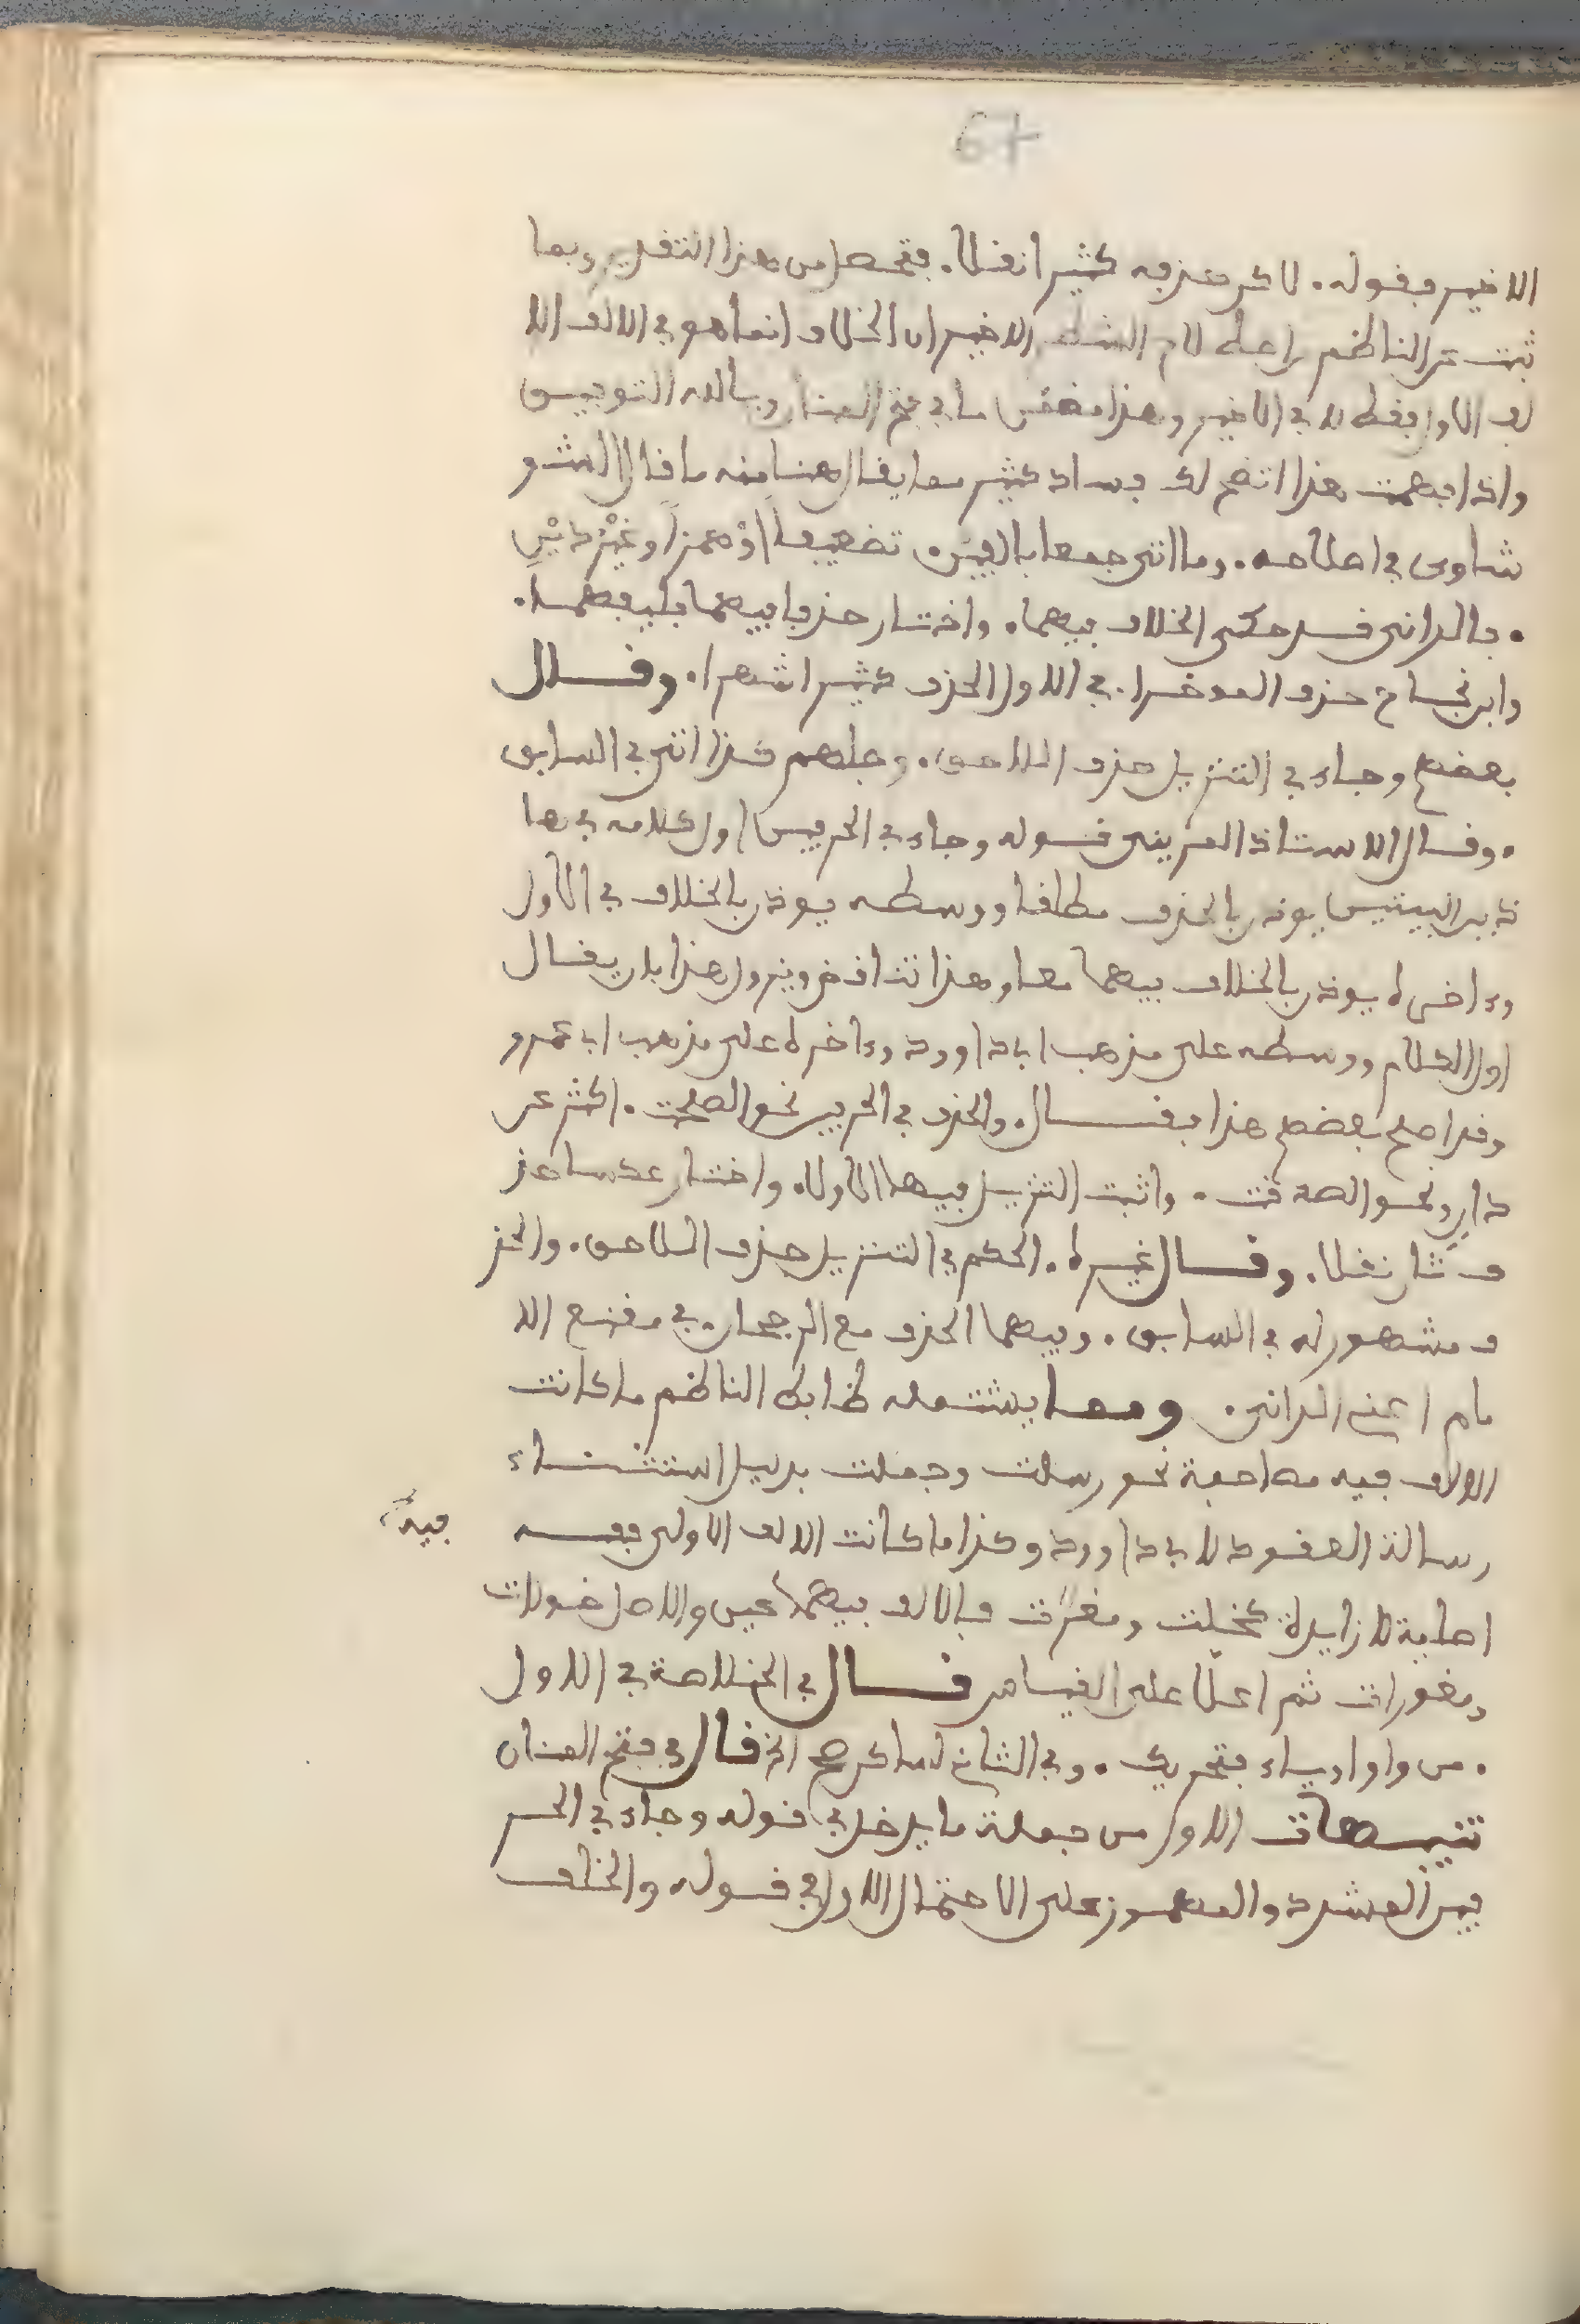 67
الاخير بقوله . لاكن حذفه كثيرا نقلا . فتحصل من هذا التقدير وبما
ثبت عن الناظم راعى لام الشطر الاخير ان الخلاف انما هو في الالف الا
لف الاول فقط لا في الاخير وهذا مقتضى ما في فتح المنان وبالله التوفيق
واذا فهمت هذا اتضح لك فساد كثير مما يقال هنا منه ما قال الشو
شاوى في اصلاحه . وما اتى جمعا بالفين . تضعيفا او همزا وغير ذين
. فالدانى قد حكى الخلاف فيهما . واختار حذفا فيهما فليفهما .
وابن نجاح حذف المؤخرا . في الاول الحذف كثيرا شهرا . وقال
بعضهم وجاء في التنزيل حذف اللاحق . وجلهم كذا اتى في السابق
. وقال الاستاذ المرينى قوله وجاء في الحرفين اول كلامه في ها
ذين البيتين يوذن بالحذف مطلقا ووسطه يوذن بالخلاف في الاول
وءاخره يوذن بالخلاف فيهما معا وهذا تناقض ويزول هذا بان يقال
اول الكلام ووسطه على مذهب ابي داوود وءاخره على مذهب ابي عمرو
وقد اصلح بعضهم هذا فقال . والحذف في الحرفين نحو الصلحت . اكثر عن
دان ونحو الصدقت . واثبت التنزيل فيها الاولا . واختار عكسا حذ
ف ثان نقلا . وقال غيره . الحكم في التنزيل حذف اللاحق . والحذ
ف مشهور له في السابق . وفيهما الحذف مع الرجحان في مقنع الا
مام اعنى الدانى . ومما يشتمله ضابط الناظم ما كانت
الالف فيه مصاحبة نحو رسلت وجملت بدليل استثناء
رسالة العقود لابي داوود وكذا ما كانت الالف الاولى فيه
فيه
اصلية لا زايدة كخلت ومغرت فالالف فيهما عين والاصل خولات
ومغورات ثم اعلا على القياس قال في الخلاصة في الاول
. من واو او ياء بتحريك . وفي الثاني لساكن صح الخ قال في فتح المنان
تنبيهات الاول من جملة ما يدخل في قوله وجاء في الحر
فين المشدد والمهموز على الاحتمال الاول في قوله والخلف